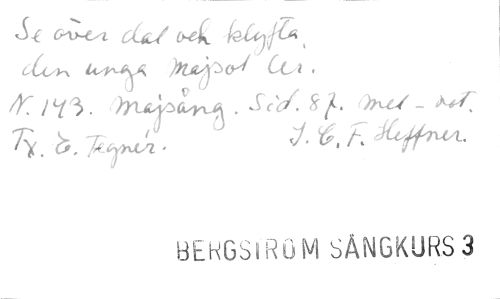 Se över dal och klyfta,
den unga majsol ler.
N. 143. Majsång. Sid. 87. mel-not.
Tx. E. Tegnér. J. C. F. Heffner.
BERGSTRÖM SÅNGKURS 3